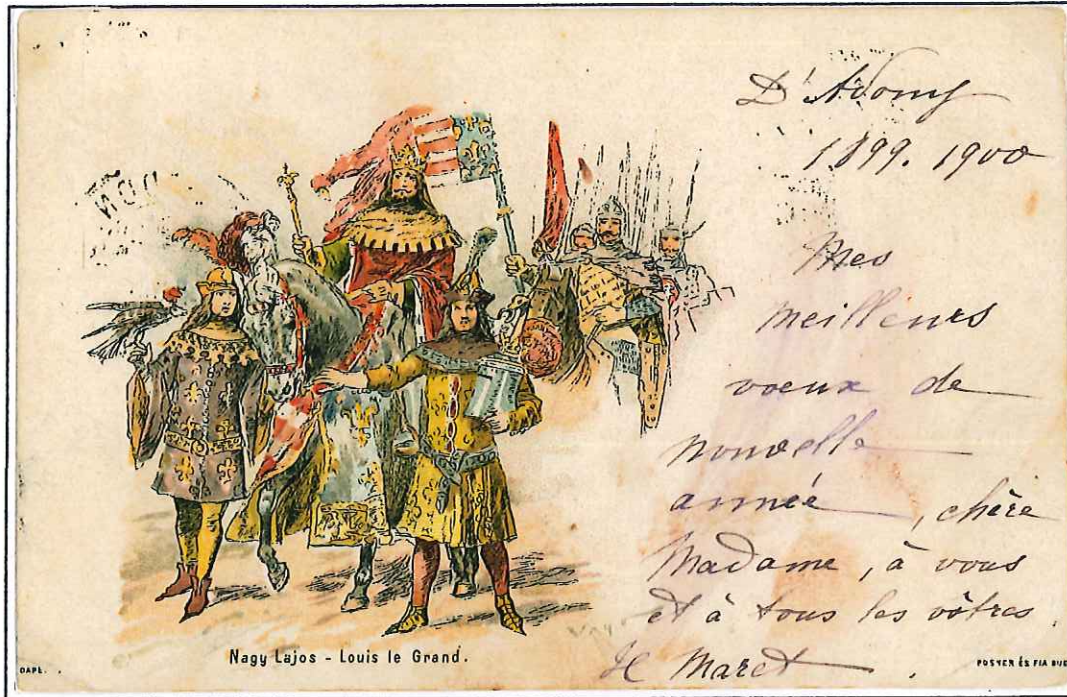 D'Adony
1899. 1900
Mes
meilleurs
voeux de
nouvelle
année, chère
Madame, à vous
et à tous les vôtres
Maret.
Nagy Lajos - Louis le Grand.
POSNER ÉS FIA BUD